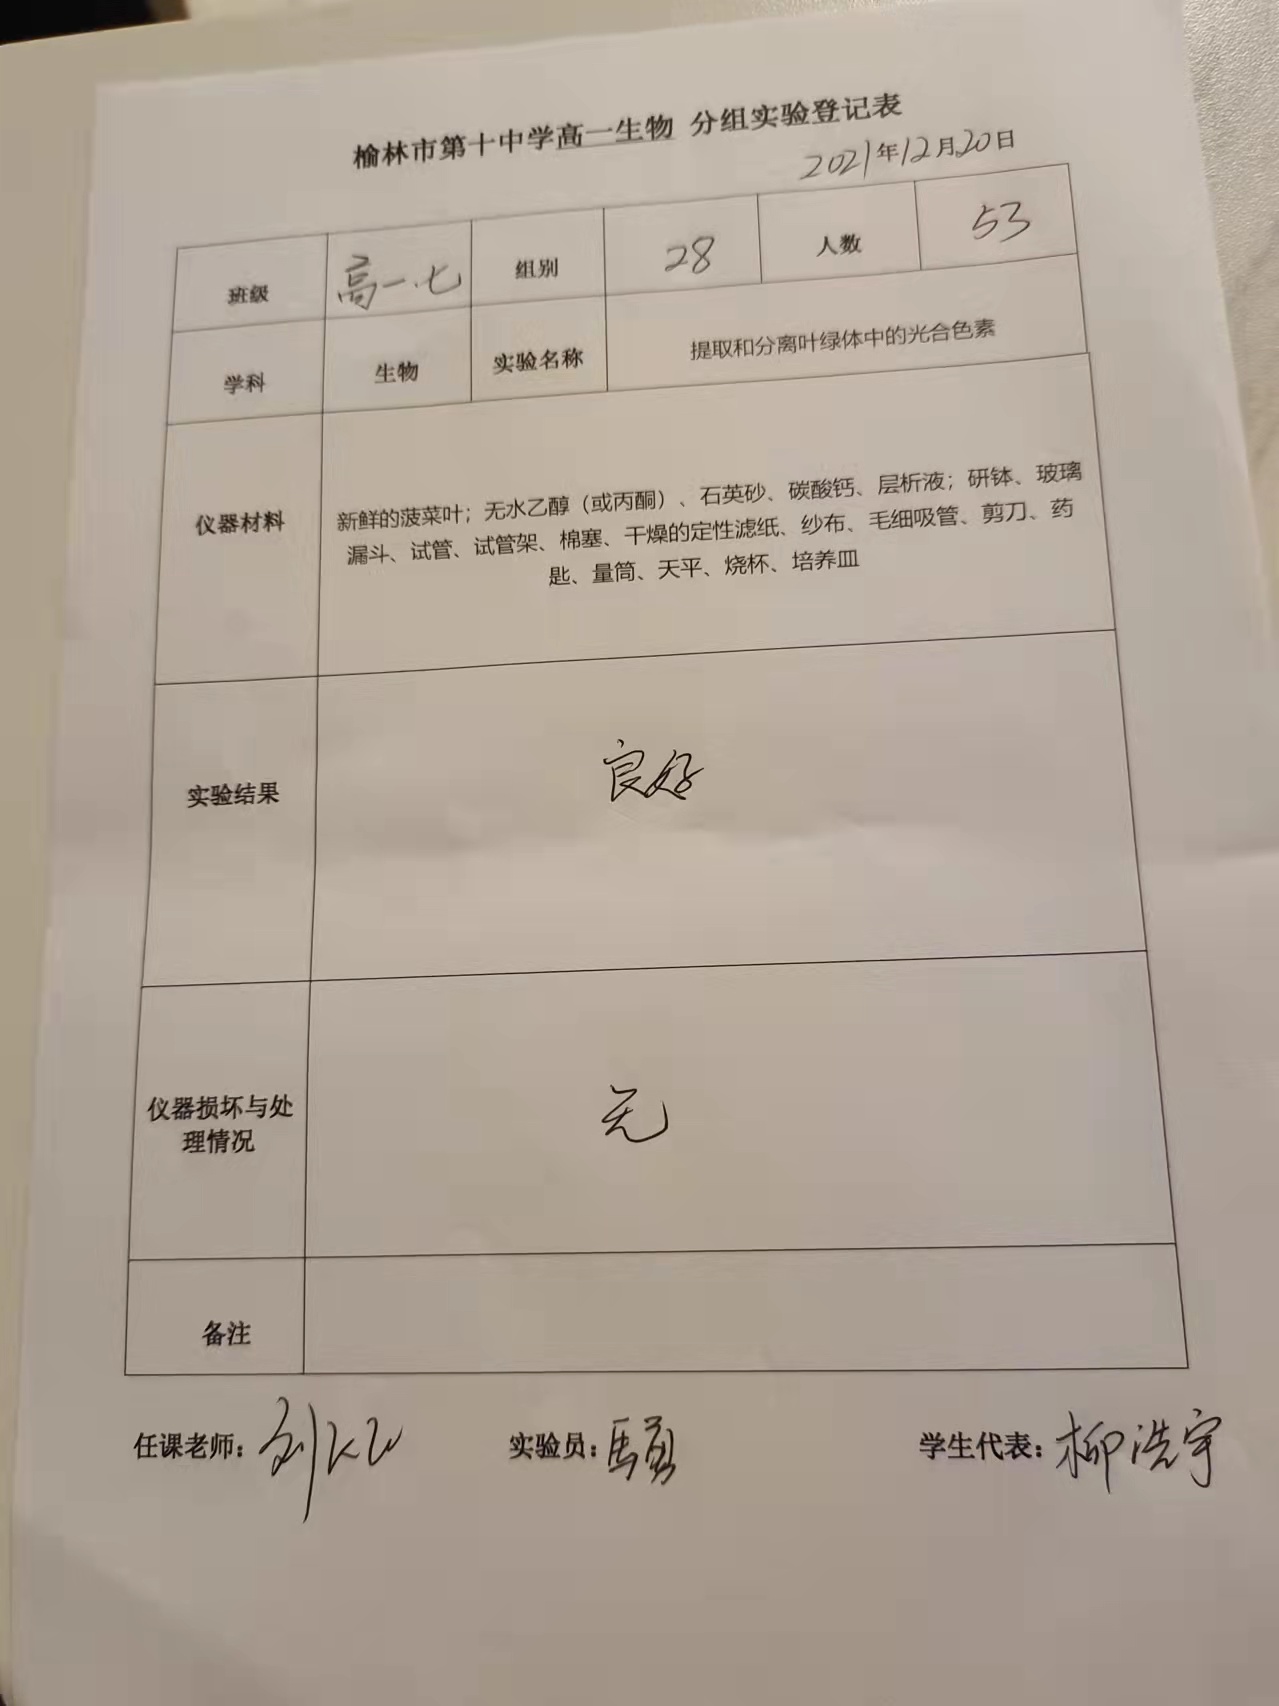 榆林市第十中学高一生物 分组实验登记表
2021年12月20日
班级 高一.七 组别 28 人数 53
学科 生物 实验名称 提取和分离叶绿体中的光合色素
仪器材料
新鲜的菠菜叶；无水乙醇（或丙酮）、石英砂、碳酸钙、层析液；研钵、玻璃
漏斗、试管、试管架、棉塞、干燥的定性滤纸、纱布、毛细吸管、剪刀、药
匙、量筒、天平、烧杯、培养皿
实验结果 良好
仪器损坏与处
理情况
无
备注
任课老师： 刘 实验员： 学生代表：柳浩宇